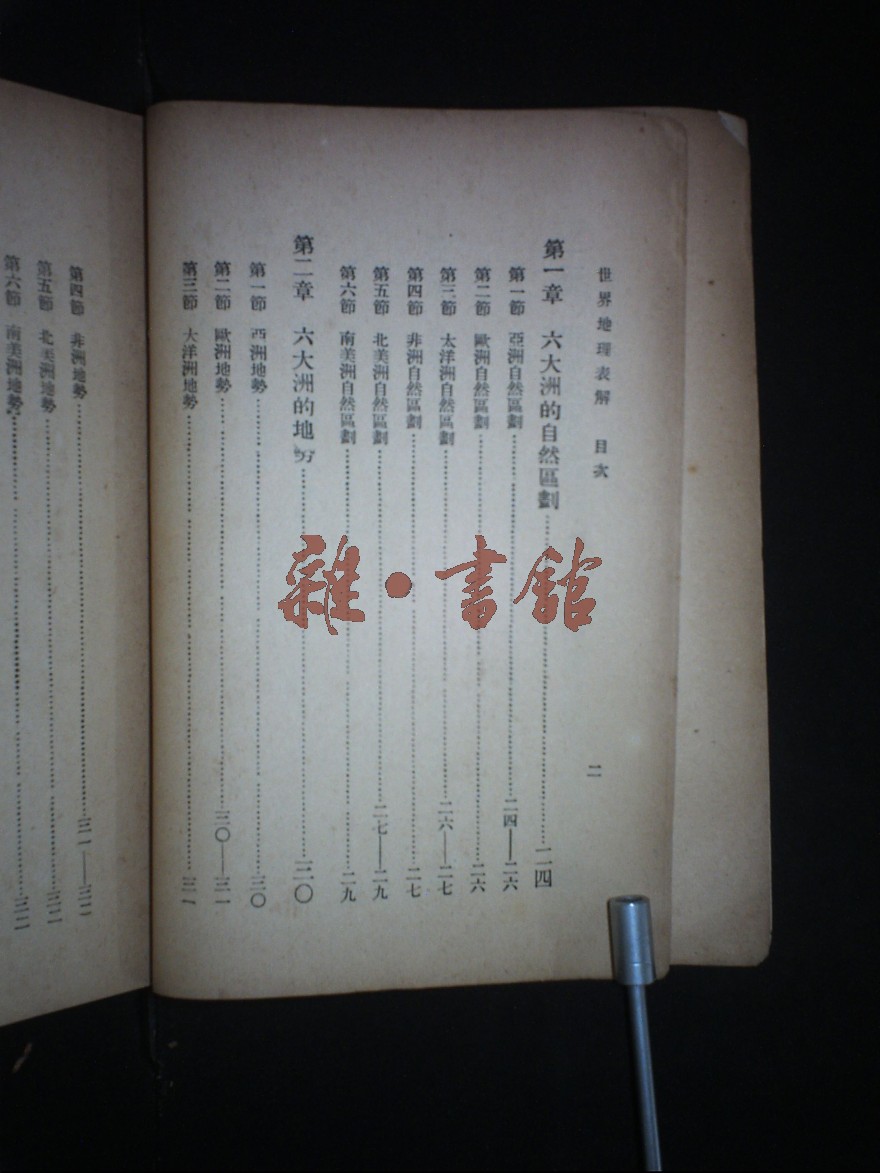 世界地理表解 目次 二
第一章 六大洲的自然區劃……二四
第一節 亞洲自然區劃……二四——二六
第二節 歐洲自然區劃……二六
第三節 太洋洲自然區劃……二六——二七
第四節 非洲自然區劃……二七
第五節 北美洲自然區劃……二七——二九
第六節 南美洲自然區劃……二九
第二章 六大洲的地勢……三〇
第一節 亞洲地勢……三〇
第二節 歐洲地勢……三〇——三一
第三節 大洋洲地勢……三一
第四節 非洲地勢……三一——三二
第五節 北美洲地勢……三二
第六節 南美洲地勢……三二
雜·書館